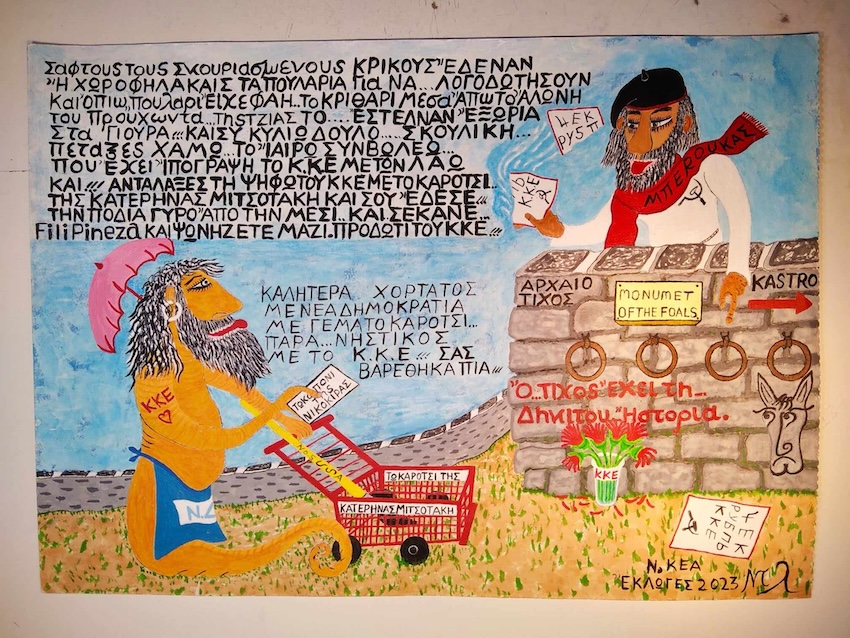 ΣαΦΤΟυς ΤΟυς ΣΚΟυΡΙαΣμΕΝΟυς ΚΡΙΚΟΥΣ"ΕΔΕΝΑΝ
"Η ΧΩΡΟΦΗΛΑΚΑΙΣ ΤΑ ΠΟΥΛΑΡΙΑ ΓΙΑ ΝΑ...ΛΟΓΟΔΩΤΗΣΟΥΝ
ΚαιΌΠΙΟ,ΠΟυλαΡΙ"ΕΙΧΕ ΦΑΗ..ΤΟ ΚΡΙΘΑΡΙ ΜΕΣα"ΑΠΩΤΟ"ΑΛΩΝΗ
ΤΟυ ΠΡΟΥΧΩΝΤΑ...ΤΗΣ ΤΖΙΑΣ ΤΟ....ΈΣΤΕΛΝΑΝ"ΕΞΩΡΙΑ
ΣΤα "ΓΙΟΥΡΑ...ΚΑΙ ΣΥ ΚΥΛΙΩΔΟΥΛΟ....ΣΚΟΥΛΙΚΗ...
ΠΕΤαΞΕς ΧΑΜΩ...ΤΟ"ΙΑΙΡΟ ΣΥΝΒΟΛΕΩ...
ΠΟΥ"ΕΧΕΙ"ΙΠΟΓΡΑΨΗ ΤΟ Κ.Κ.Ε ΜΕ ΤΟΝ ΛΑΩ
ΚΑΙ!!! ΑΝΤΑΛΑΞΕΣ ΤΗ ΨΗΦΩ ΤΟΥ ΚΚΕ ΜΕ ΤΟ ΚΑΡΟΤΣΙ...
ΤΗΣ ΚΑΤΕΡΗΝΑΣ ΜΙΤΣΟΤΑΚΗ ΚΑΙ ΣΟΥ"ΕΔΕΣΕ...
ΤΗΝ ΠΟΔΙΑ ΓΥΡΟ"ΑΠΟ ΤΗΝ ΜΕΣΙ..ΚΑΙ.ΣΕΚΑΝΕ..
Fili PineZα ΚΑΙ ΨΩΝΗΖΕΤΕ ΜΑΖΙ.ΠΡΟΔΩΤΙ ΤΟΥ ΚΚΕ...
ЧЕК
РУБЛ
Ю
К.К.Ε
ΜΠΕΡΟΥΚΑΣ
ΚΑΛΗΤΕΡΑ ΧΟΡΤΑΤΟΣ
ΜΕ ΝΕΑ ΔΗΜΟΚΡΑΤΙΑ
ΜΕ ΓΕΜΑΤΟ ΚΑΡΟΤΣΙ...
ΠΑΡΑ...ΝΗΣΤΙΚΟΣ
ΜΕ ΤΟ Κ.Κ.Ε !!! ΣΑΣ
ΒΑΡΕΘΗΚΑ ΠΙΑ!!!
ΑΡΧΑΙΟ
ΤΙΧΟΣ
MONUMET
OF THE FOALS
KASTRO
"Ο...ΤΙΧΟς"ΕΧΕΙ ΤΗ...
ΔΗΚΙΤΟΥ."ΗΣΤΟΡΙΑ.
ΚΚΕ
ΝΙΚΟΚΙΡΑΣ
Ν.Δ
ΤΩ ΚΑΡΟΤΣΙ ΤΗΣ
ΚΑΤΕΡΗΝΑΣ ΜΙΤΣΟΤΑΚΗ
ΚΚΕ
ЧЕК
РУБЛЬ
ККЕ
Ν. ΚΕΑ
ΕΚΛΩΓΕΣ 2023